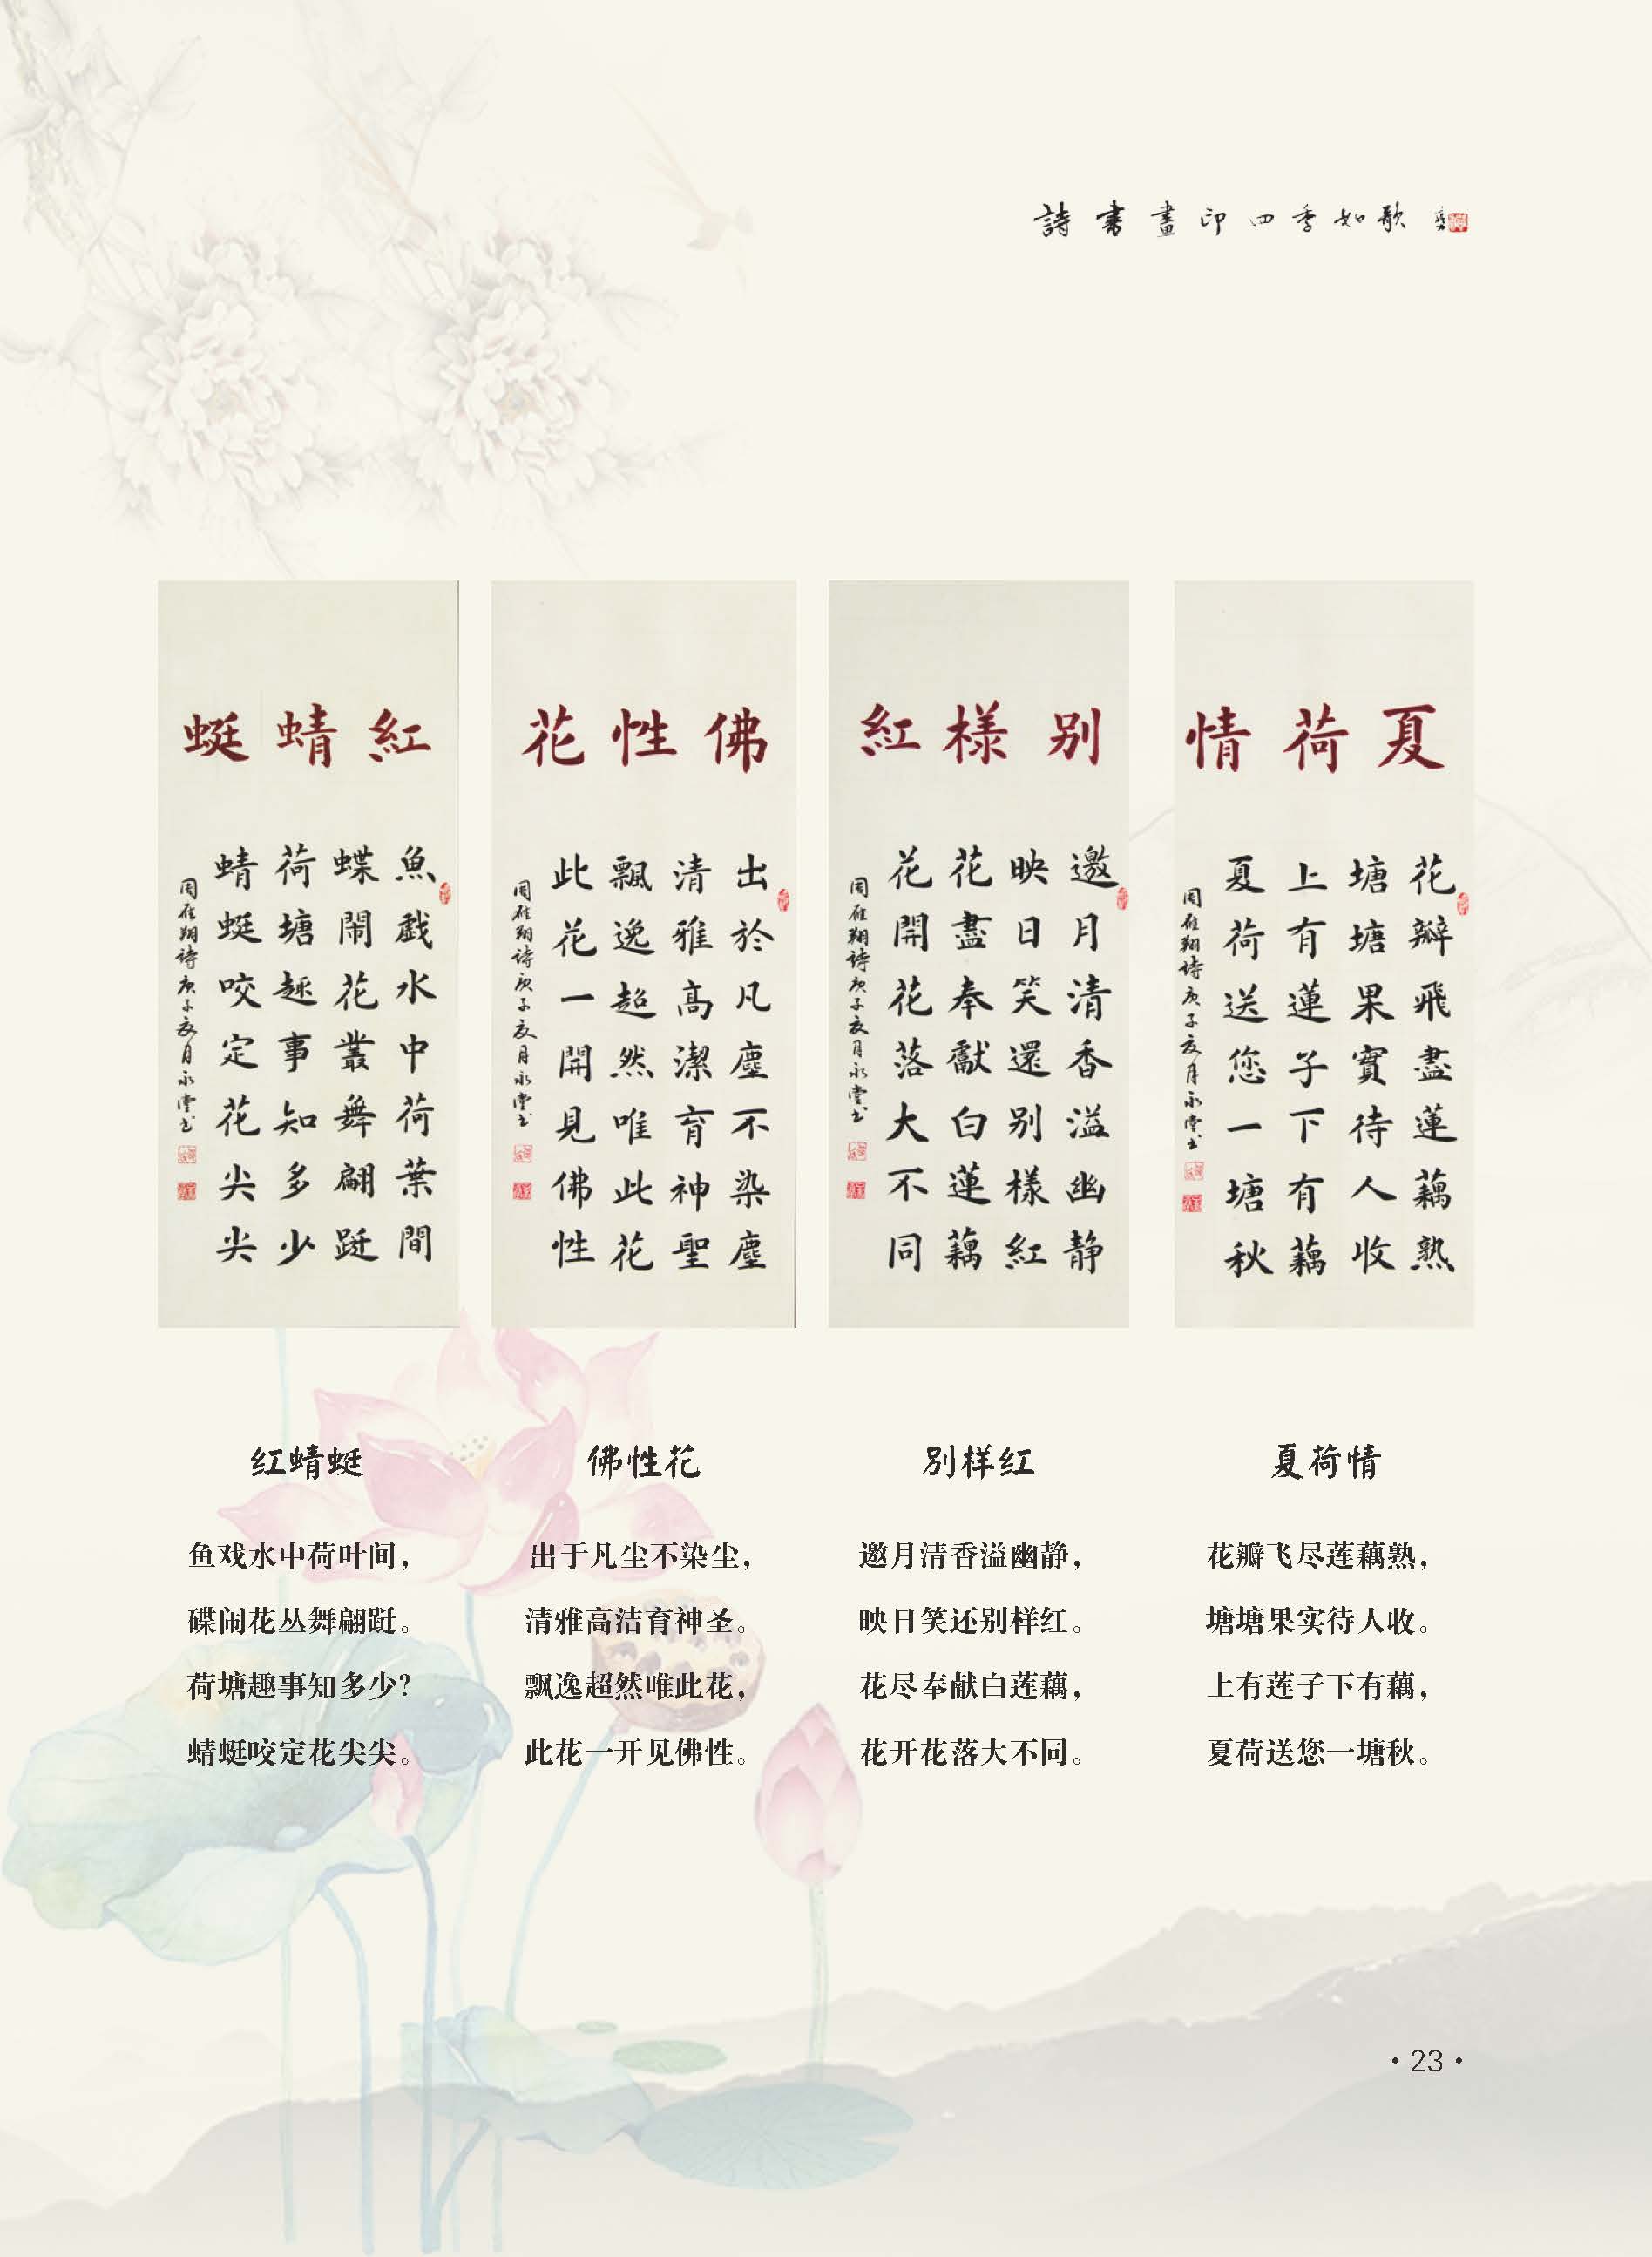 詩書畫印四季如歌
紅蜻蜓
魚戲水中荷葉間
蝶鬧花叢舞翩跹
荷塘趣事知多少
蜻蜓咬定花尖尖
周雁翔詩庚子夏月永堂书
佛性花
出於凡塵不染塵
清雅高潔育神聖
飄逸超然唯此花
此花一開見佛性
周雁翔詩庚子夏月永堂书
别樣紅
邀月清香溢幽静
映日笑還别樣紅
花盡奉獻白蓮藕
花開花落大不同
周雁翔詩庚子夏月永堂书
夏荷情
花瓣飛盡蓮藕熟
塘塘果實待人收
上有蓮子下有藕
夏荷送您一塘秋
周雁翔诗庚子夏月永堂书
红蜻蜓
鱼戏水中荷叶间，
碟闹花丛舞翩跹。
荷塘趣事知多少？
蜻蜓咬定花尖尖。
佛性花
出于凡尘不染尘，
清雅高洁育神圣。
飘逸超然唯此花，
此花一开见佛性。
别样红
邀月清香溢幽静，
映日笑还别样红。
花尽奉献白莲藕，
花开花落大不同。
夏荷情
花瓣飞尽莲藕熟，
塘塘果实待人收。
上有莲子下有藕，
夏荷送您一塘秋。
·23·